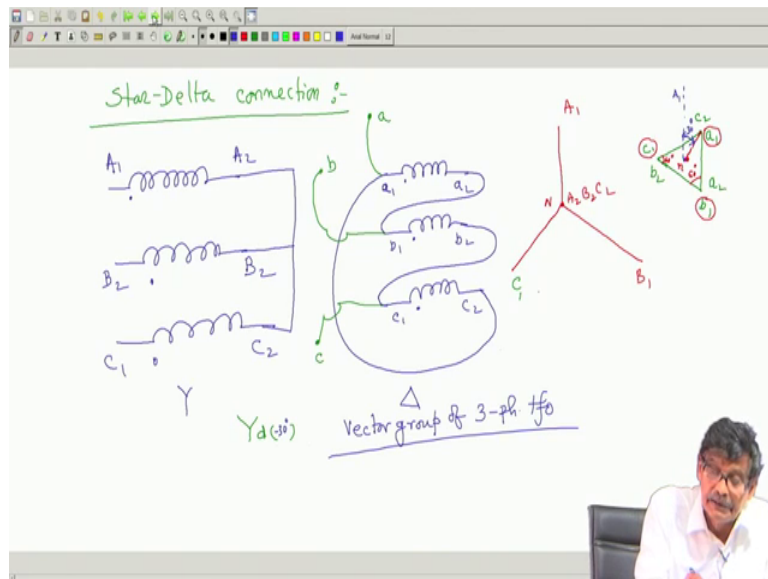 Arial Normal 12
Star-Delta connection :-
A1 A2
B2 B2
C1 C2
Y
a
b
c
a1 a2
b1 b2
c1 c2
Δ
Yd(-30°)
Vector group of 3-ph. tfo
A1
N A2 B2 C2
C1
B1
A1
30°
C2
a1
c1
60°
n
b2
60°
a2
b1